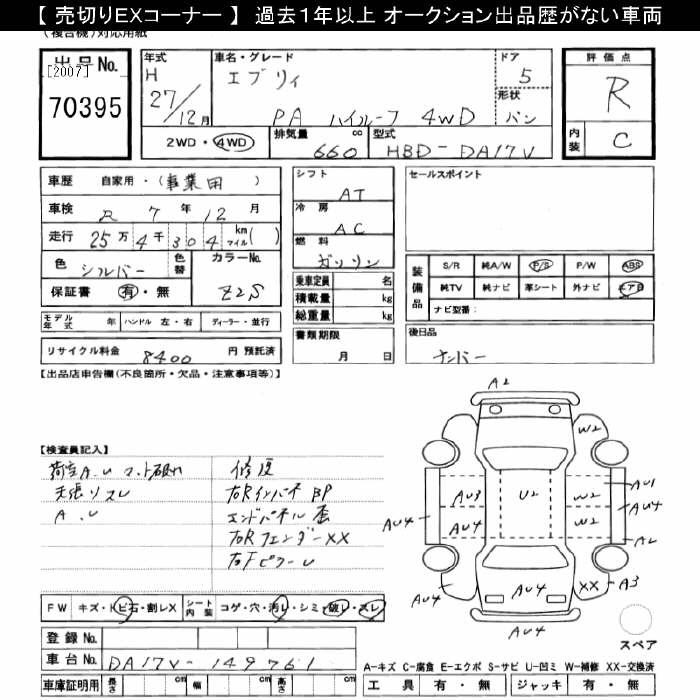 【 売切りEXコーナー 】 過去１年以上 オークション出品歴がない車両
(複合機)対応用紙
出品No.
[2007]
70395
年式
H
27/12月
車名・グレード
エブリィ
PA ハイルーフ 4WD
ドア
5
形状
バン
評価点
R
内装
C
2WD・4WD
排気量
660
cc
型式
HBD-DA17V
車歴 自家用・(事業用 )
車検 R 7 年 12 月
走行 25 万 4 千 3 0 4 km マイル( )
色 シルバー
色替
カラーNo.
Z2S
保証書 有・無
モデル年式 年 ハンドル 左・右 ディーラー・並行
リサイクル料金 8400 円 預託済
シフト
AT
冷房
AC
燃料
ガソリン
乗車定員 名
積載量 kg
総重量 kg
書類期限
月 日
セールスポイント
装備品
S/R 純A/W P/S P/W ABS
純TV 純ナビ 革シート 外ナビ エアB
ナビ型番：
後日品
ナンバー
【出品店申告欄(不良箇所・欠品・注意事項等)】
【検査員記入】
荷室A.U マット破れ
天張りスレ
A.U
修復
右Rインパネ BP
エンドパネル歪
右Rフェンダー××
右FピラーU
A2
W2
U2
AU3
W2
AU1
AU4
AU4
W2
AU4
A2
AU4
AU4
XX
A3
AU4
スペア
FW キズ・トビ石・割レX
シート内装 コゲ・穴・汚レ・シミ・破レ・スレ
登録No.
車台No. DA17V-149761
車庫証明用 長さ cm 幅 cm 高さ cm
A-キズ C-腐食 E-エクボ S-サビ U-凹ミ W-補修 XX-交換済
工具 有・無 ジャッキ 有・無